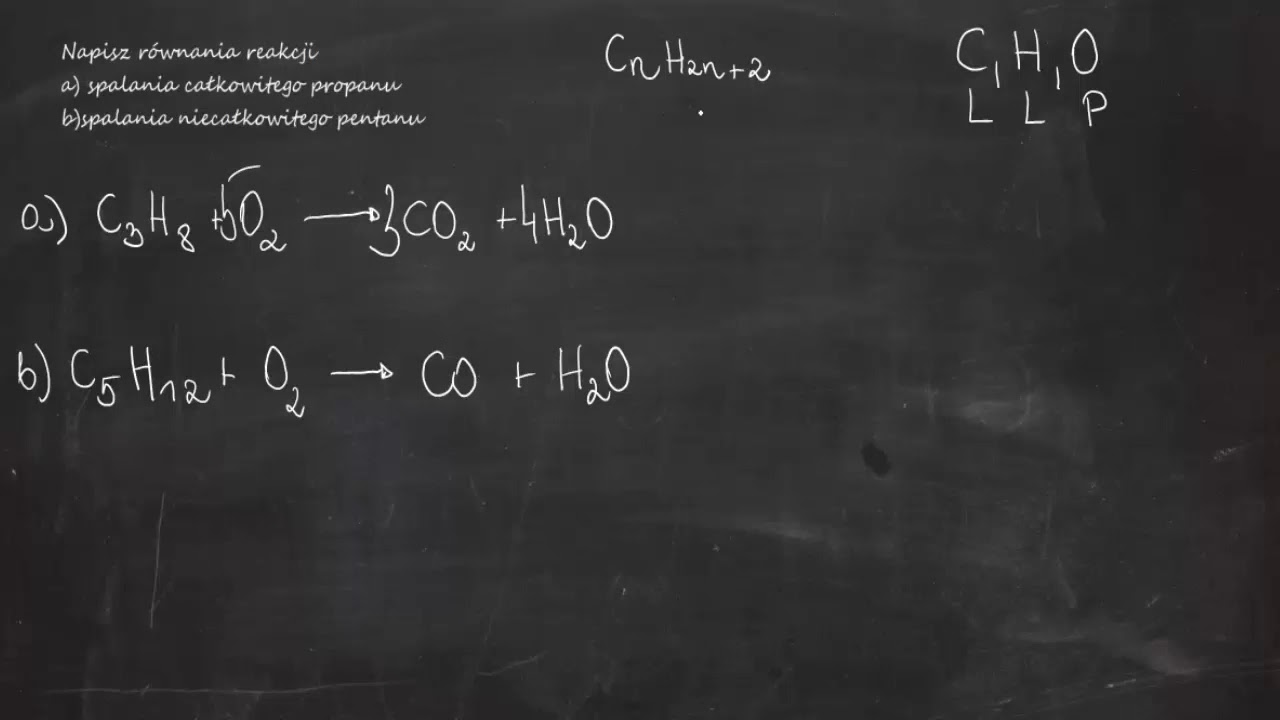 Napisz równania reakcji
a) spalania całkowitego propanu
b)spalania niecałkowitego pentanu
CnH2n+2
C, H, O
L L P
a) C3H8 + 5O2 → 3CO2 + 4H2O
b) C5H12 + O2 → CO + H2O